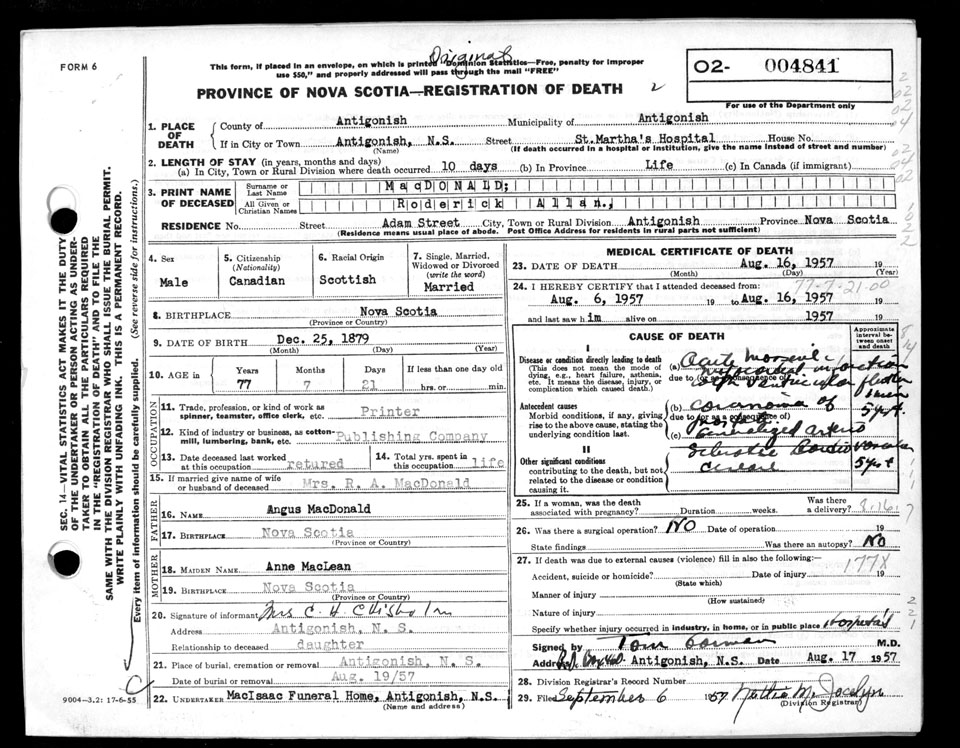 FORM 6
Original
This form, if placed in an envelope, on which is printed "Dominion Statistics—Free, penalty for improper
use $50," and properly addressed will pass through the mail "FREE"
PROVINCE OF NOVA SCOTIA—REGISTRATION OF DEATH 2
02- 004841
For use of the Department only
1. PLACE OF DEATH { County of Antigonish Municipality of Antigonish
If in City or Town Antigonish, N.S. Street St.Martha's Hospital House No.
(Name) (If death occurred in a hospital or institution, give the name instead of street and number)
2. LENGTH OF STAY (in years, months and days)
(a) In City, Town or Rural Division where death occurred 10 days (b) In Province Life (c) In Canada (if immigrant)
3. PRINT NAME OF DECEASED { Surname or Last Name MacDONALD;
All Given or Christian Names Roderick Allan.,
RESIDENCE No. Street Adam Street City, Town or Rural Division Antigonish Province Nova Scotia
(Residence means usual place of abode. Post Office Address for residents in rural parts not sufficient)
4. Sex
Male
5. Citizenship
(Nationality)
Canadian
6. Racial Origin
Scottish
7. Single, Married,
Widowed or Divorced
(write the word)
Married
8. BIRTHPLACE Nova Scotia
(Province or Country)
9. DATE OF BIRTH Dec. 25, 1879
(Month) (Day) (Year)
10. AGE in Years Months Days If less than one day old
77 7 21 hrs. or min.
OCCUPATION
11. Trade, profession, or kind of work as
spinner, teamster, office clerk, etc. Printer
12. Kind of industry or business, as cotton-
mill, lumbering, bank, etc. Publishing Company
13. Date deceased last worked
at this occupation retured
14. Total yrs. spent in
this occupation life
15. If married give name of wife
or husband of deceased Mrs. R. A. MacDonald
FATHER
16. NAME Angus MacDonald
17. BIRTHPLACE Nova Scotia
(Province or Country)
MOTHER
18. MAIDEN NAME Anne MacLean
19. BIRTHPLACE Nova Scotia
(Province or Country)
20. Signature of informant Mrs C. H Chisholm
Address Antigonish, N. S.
Relationship to deceased daughter
21. Place of burial, cremation or removal Antigonish, N. S.
Date of burial or removal Aug. 19/57
22. UNDERTAKER MacIsaac Funeral Home, Antigonish, N.S.
(Name and address)
9004—3.2: 17-6-55
MEDICAL CERTIFICATE OF DEATH
23. DATE OF DEATH Aug. 16, 1957 19
(Month) (Day) (Year)
24. I HEREBY CERTIFY that I attended deceased from: 77-7-21-00
Aug. 6, 1957 19 to Aug. 16, 1957 19
and last saw him alive on 1957 19
CAUSE OF DEATH
Approximate interval between onset and death
I
Disease or condition directly leading to death
(This does not mean the mode of
dying, e.g., heart failure, asthenia,
etc. It means the disease, injury, or
complication which caused death.)
(a) Acute
myocardial infarction
due to (or as a consequence of)
Antecedent causes
Morbid conditions, if any, giving
rise to the above cause, stating the
underlying condition last.
(b) carcinoma of
due to (or as a consequence of)
prostate
5 yrs +
(c) generalized arterio
II
Other significant conditions
contributing to the death, but not
related to the disease or condition
causing it.
sclerotic cardiovascular
disease
5 yrs +
25. If a woman, was the death
associated with pregnancy? Duration weeks. Was there
a delivery? 8.16.7
26. Was there a surgical operation? NO Date of operation 19
State findings Was there an autopsy? No
27. If death was due to external causes (violence) fill in also the following: 177X
Accident, suicide or homicide? Date of injury 19
(State which)
Manner of injury
(How sustained)
Nature of injury
Specify whether injury occurred in industry, in home, or in public place Hospital
Signed by Gorman M.D.
Address Antigonish, N.S. Date Aug. 17 1957
28. Division Registrar's Record Number
29. Filed September 6 1957 Nattie M. Jocelyn
(Division Registrar)
SEC. 14—VITAL STATISTICS ACT MAKES IT THE DUTY
OF THE UNDERTAKER OR PERSON ACTING AS UNDER-
TAKER TO OBTAIN ALL THE PARTICULARS REQUIRED
IN THE "REGISTRATION OF DEATH" AND TO FILE THE
SAME WITH THE DIVISION REGISTRAR WHO SHALL ISSUE THE BURIAL PERMIT.
WRITE PLAINLY WITH UNFADING INK. THIS IS A PERMANENT RECORD.
Every item of information should be carefully supplied. (See reverse side for instructions.)